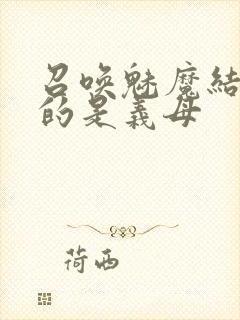 召喚魅魔結
的是義母
荷西